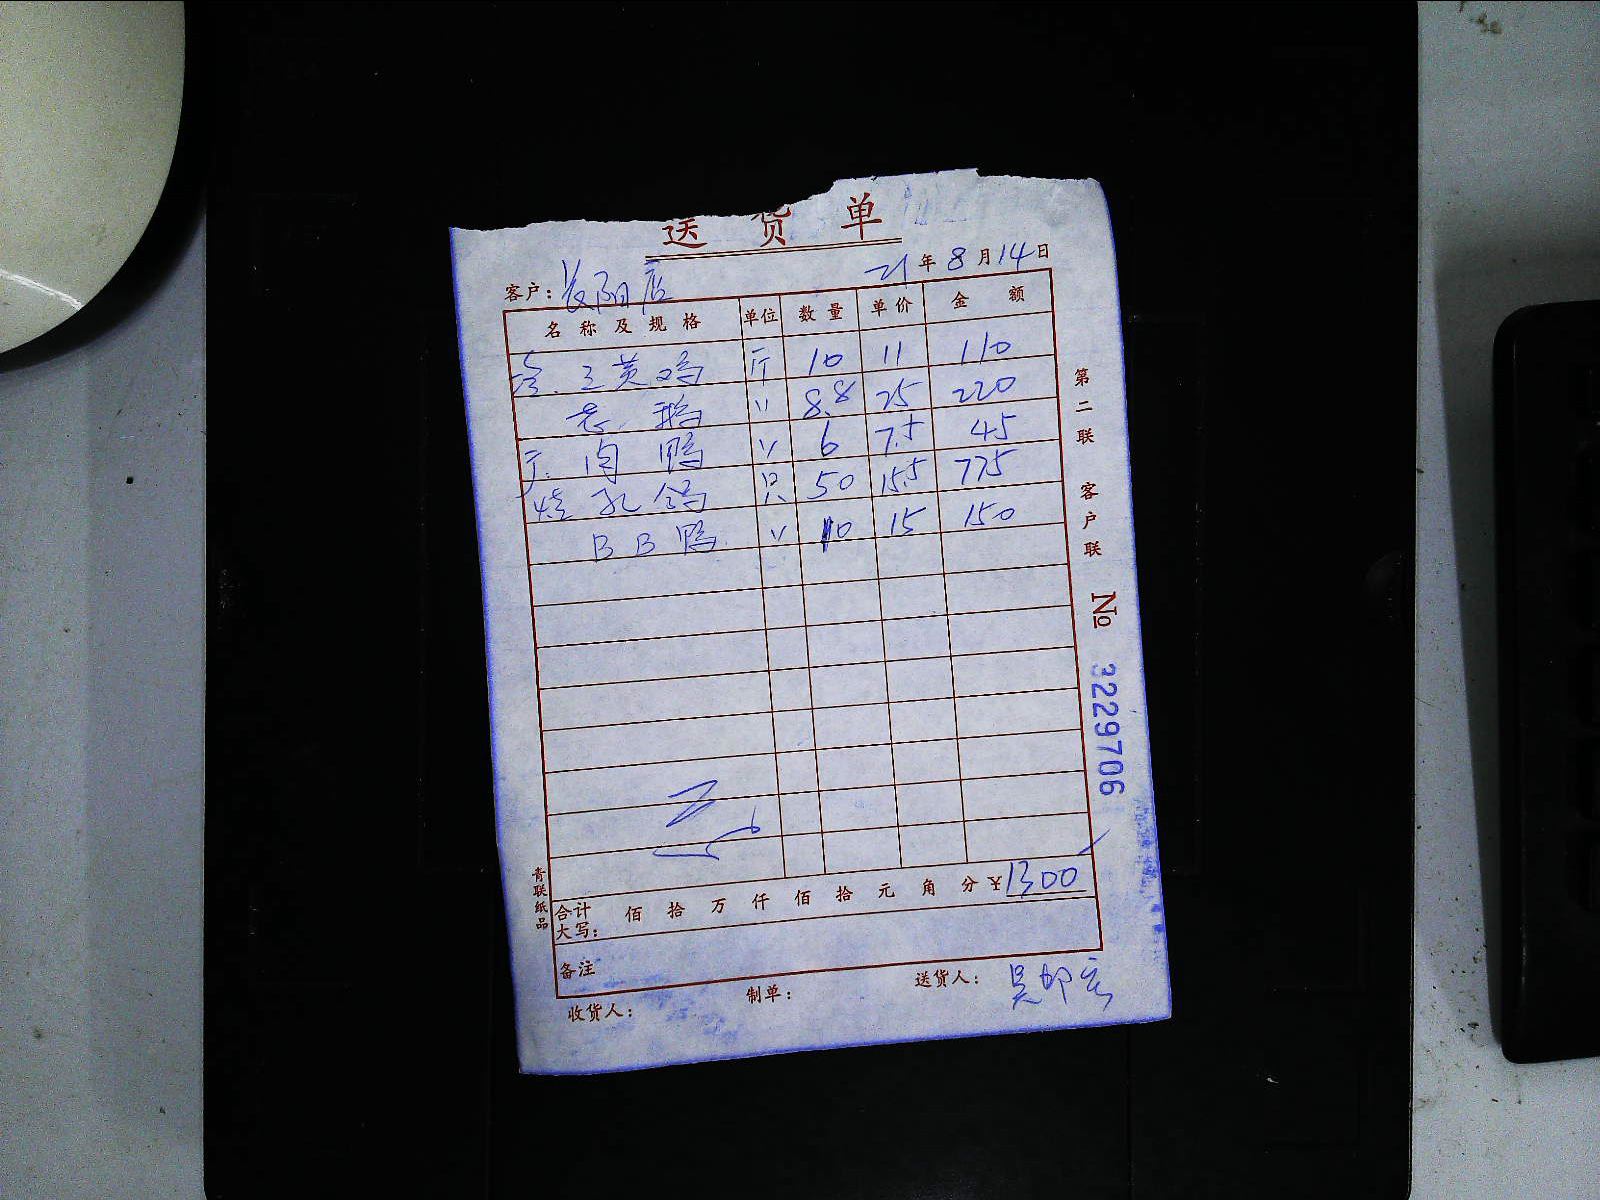 送 货 单
客户: 长阳店 21年8月14日
名称及规格 单位 数量 单价 金额
三黄鸡 斤 10 11 110
老 鸡 〃 8.8 25 220
肉 鸭 〃 6 7.5 45
烧 乳鸽 只 50 15.5 775
BB鸭 〃 10 15 150
合计大写: 佰 拾 万 仟 佰 拾 元 角 分 ¥1300
备注
收货人: 制单: 送货人:
第二联 客户联 № 3229706
青联纸品